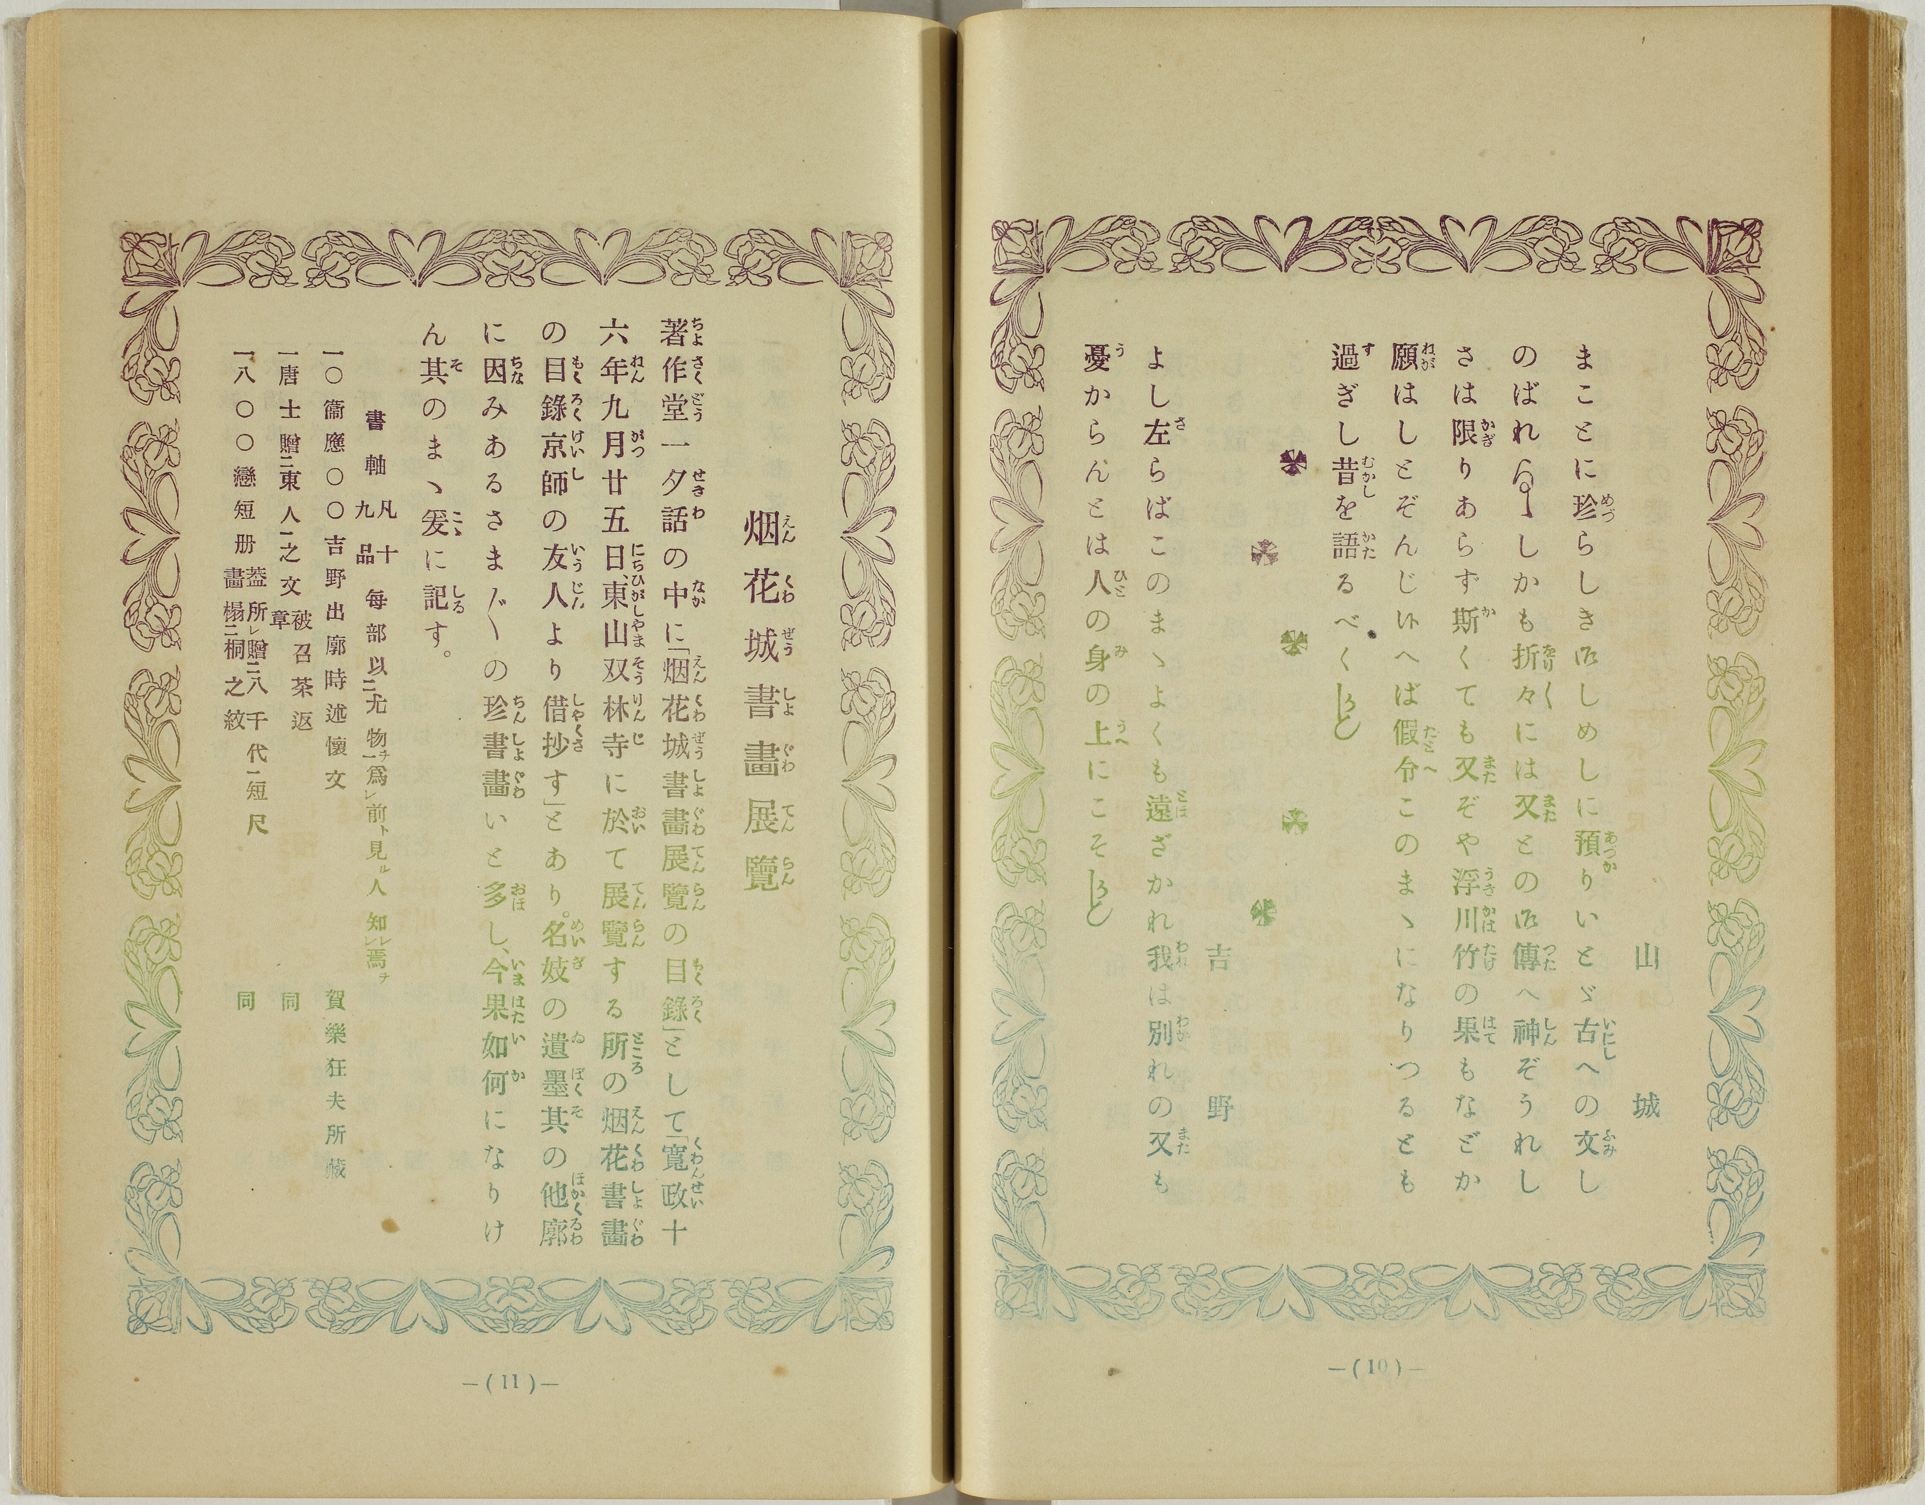 山城
まことに珍らしき御しめしに預りいとゞ古への文し
のばれ候しかも折々には又との御傳へ神ぞうれし
さは限りあらず斯くても又ぞや浮川竹の果もなどか
願はしとぞんじ候へば假令このまゝになりつるとも
過ぎし昔を語るべく
吉野
よし左らばこのまゝよくも遠ざかれ我は別れの又も
憂からんとは人の身の上にこそ
―(10)―
烟花城書畫展覽
著作堂一夕話の中に「烟花城書畫展覽の目錄」として「寬政十
六年九月廿五日、東山双林寺に於て展覽する所の烟花書畫
の目錄京師の友人より借抄す」とあり。名妓の遺墨其の他廓
に因みあるさま〴〵の珍書畫いと多し、今果如何になりけ
ん其のまゝ爰に記す。
書軸 凡十九品 每部以ニ尤物一爲レ前ト見ル人知レ焉ヲ
一〇衞應〇〇吉野出廓時述懷文 賀樂狂夫所藏
一唐士贈ニ東人一之文 被召茶返章 同
一八〇〇戀短册 蓋所レ贈ニ八千代一短尺畫榻ニ桐之紋 同
―(11)―